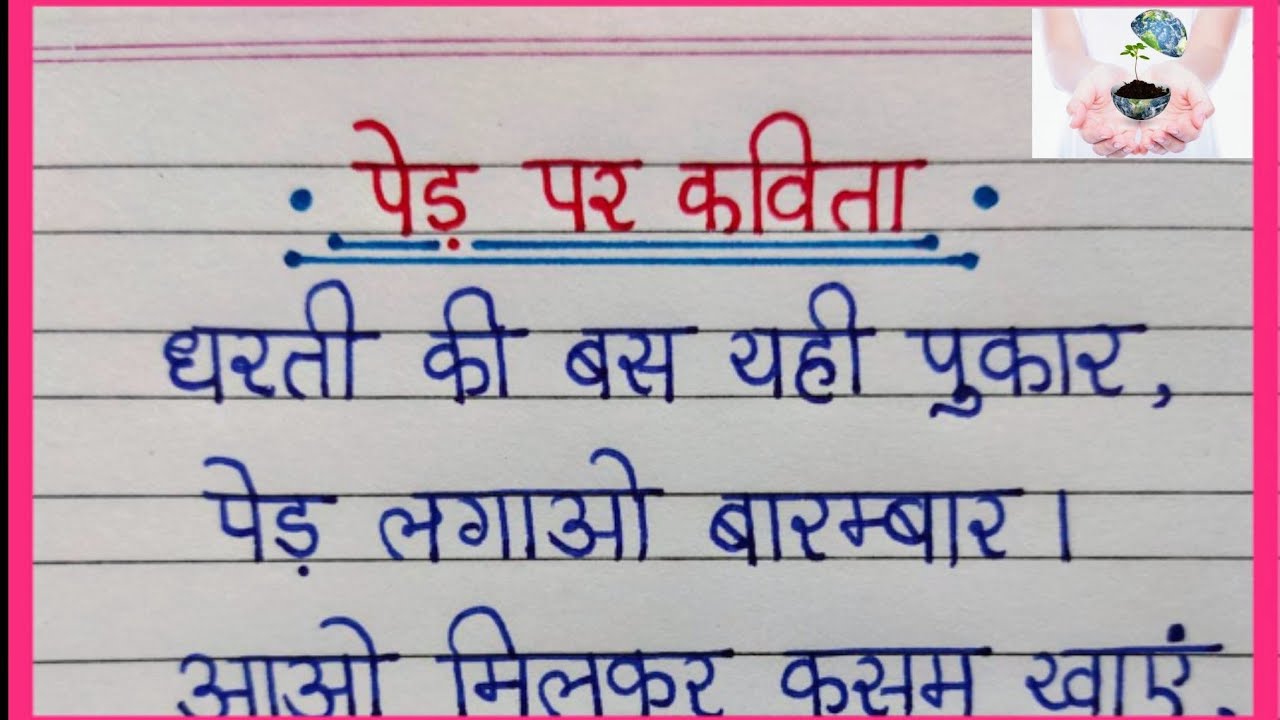 पेड़ पर कविता
धरती की बस यही पुकार,
पेड़ लगाओ बारम्बार।
आओ मिलकर कसम खाएं,